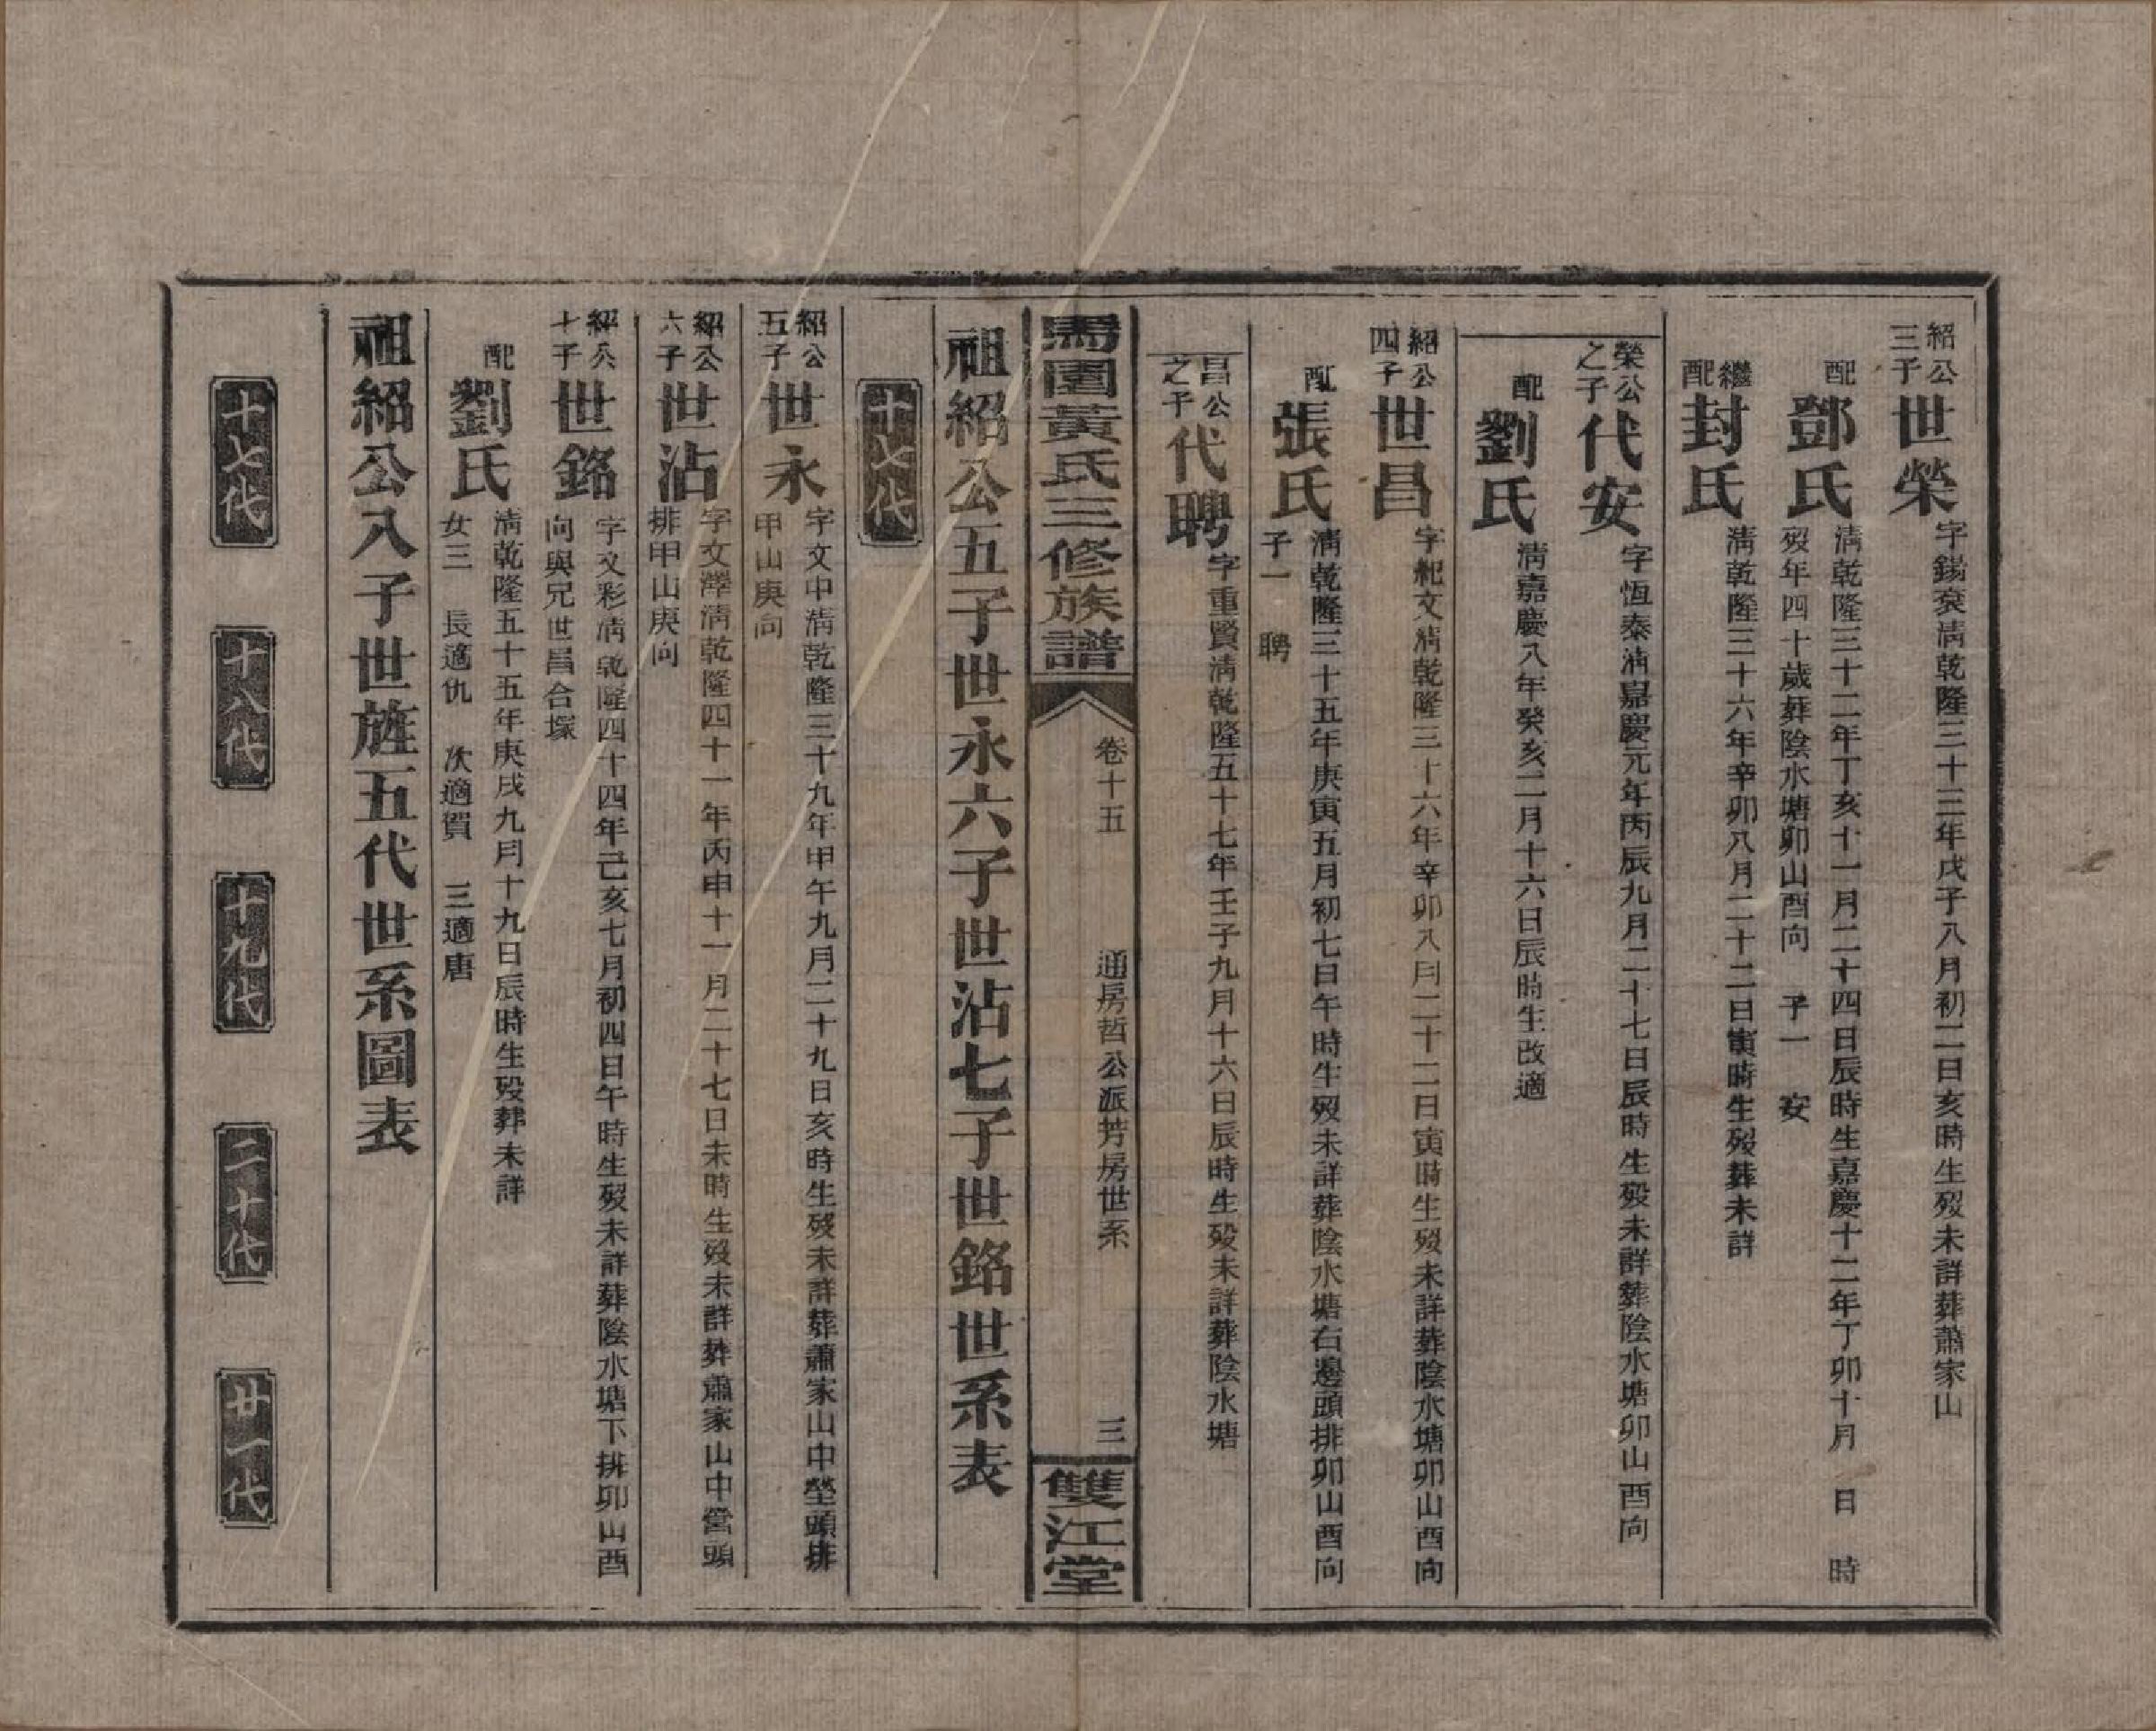 紹公三子世榮字錫袞淸乾隆三十三年戊子八月初二日亥時生歿未詳葬蕭家山
配鄧氏淸乾隆三十二年丁亥十一月二十四日辰時生嘉慶十二年丁卯十月 日 時
歿年四十歲葬陰水塘卯山酉向 子一 安
繼配封氏淸乾隆三十六年辛卯八月二十二日寅時生歿葬未詳
榮公之子代安字恆泰淸嘉慶元年丙辰九月二十七日辰時生歿未詳葬陰水塘卯山酉向
配劉氏淸嘉慶八年癸亥二月十六日辰時生改適
紹公四子世昌字紀文淸乾隆三十六年辛卯八月二十二日寅時生歿未詳葬陰水塘卯山酉向
配張氏淸乾隆三十五年庚寅五月初七日午時生歿未詳葬陰水塘右邊頭排卯山酉向
子一 聘
昌公之子代聘字重賢淸乾隆五十七年壬子九月十六日辰時生歿未詳葬陰水塘
馬園黃氏三修族譜
卷十五 通房哲公派芳房世系 三
雙江堂
祖紹公五子世永六子世沾七子世銘世系表
十七代
紹公五子世永字文中淸乾隆三十九年甲午九月二十九日亥時生歿未詳葬蕭家山中塋頭排
甲山庚向
紹公六子世沾字文澤淸乾隆四十一年丙申十一月二十七日未時生歿未詳葬肅家山中營頭
排甲山庚向
紹公七子世銘字文彩淸乾隆四十四年己亥七月初四日午時生歿未詳葬陰水塘下排卯山酉
向與兄世昌合塚
配劉氏淸乾隆五十五年庚戌九月十九日辰時生歿葬未詳
女三 長適仇 次適賀 三適唐
祖紹公入子世旌五代世系圖表
十七代
十八代
十九代
二十代
廿一代